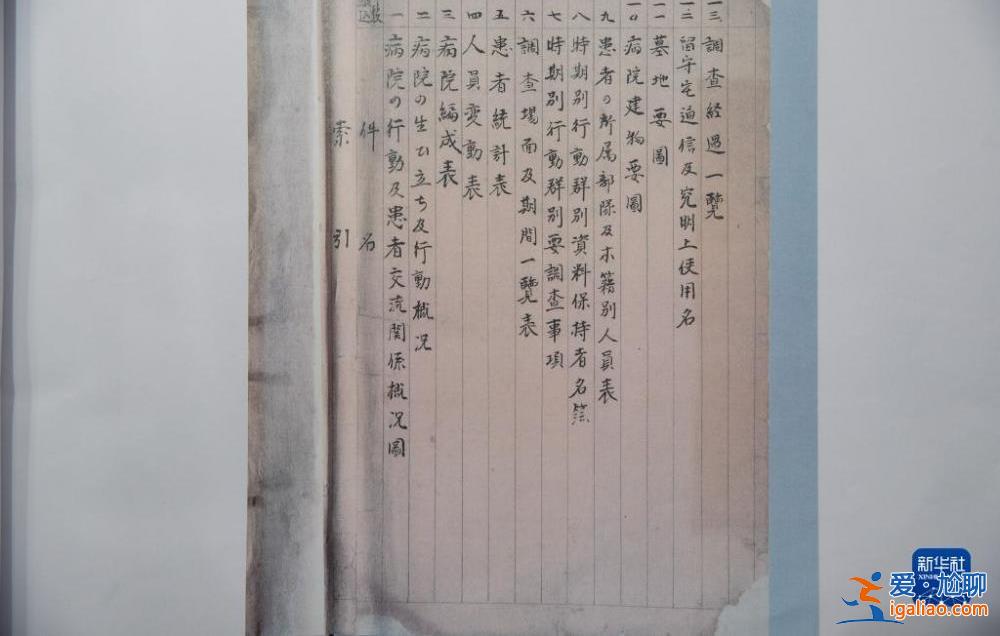 索引
件名
一 病院の行動及患者交流関係概況圖
二 病院の生ひ立ち及行動概況
三 病院編成表
四 人員変動表
五 患者統計表
六 調査場面及期間一覽表
七 時期別行動群別要調査事項
八 時期別行動群別資料保持者名簿
九 患者の所属部隊及本籍別人員表
一〇 病院建物要圖
一一 墓地要圖
一二 留守宅通信及究明上使用名
一三、調査経過一覽
新华社
爱·尬聊
igaliao.com